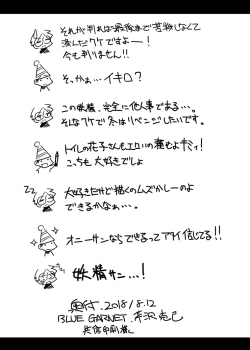 それが判れば最後まで苦労しなくて
済んだワケですよー!
今も判りません!!
そっかぁ…イキロ?
この妖精、完全に他人事である…。
そんなワケで冬はリベンジしたいです。
トイレの花子さんもエロいの着もよキミィ!
こっちも大好きでしょ
大好きだけど描くのムズかしーのよ
できるかなぁ…。
オニーサンならできるってアタイ信じてる!!
妖精サン…!
奥付. 2018/8.12
BLUE GARNET.